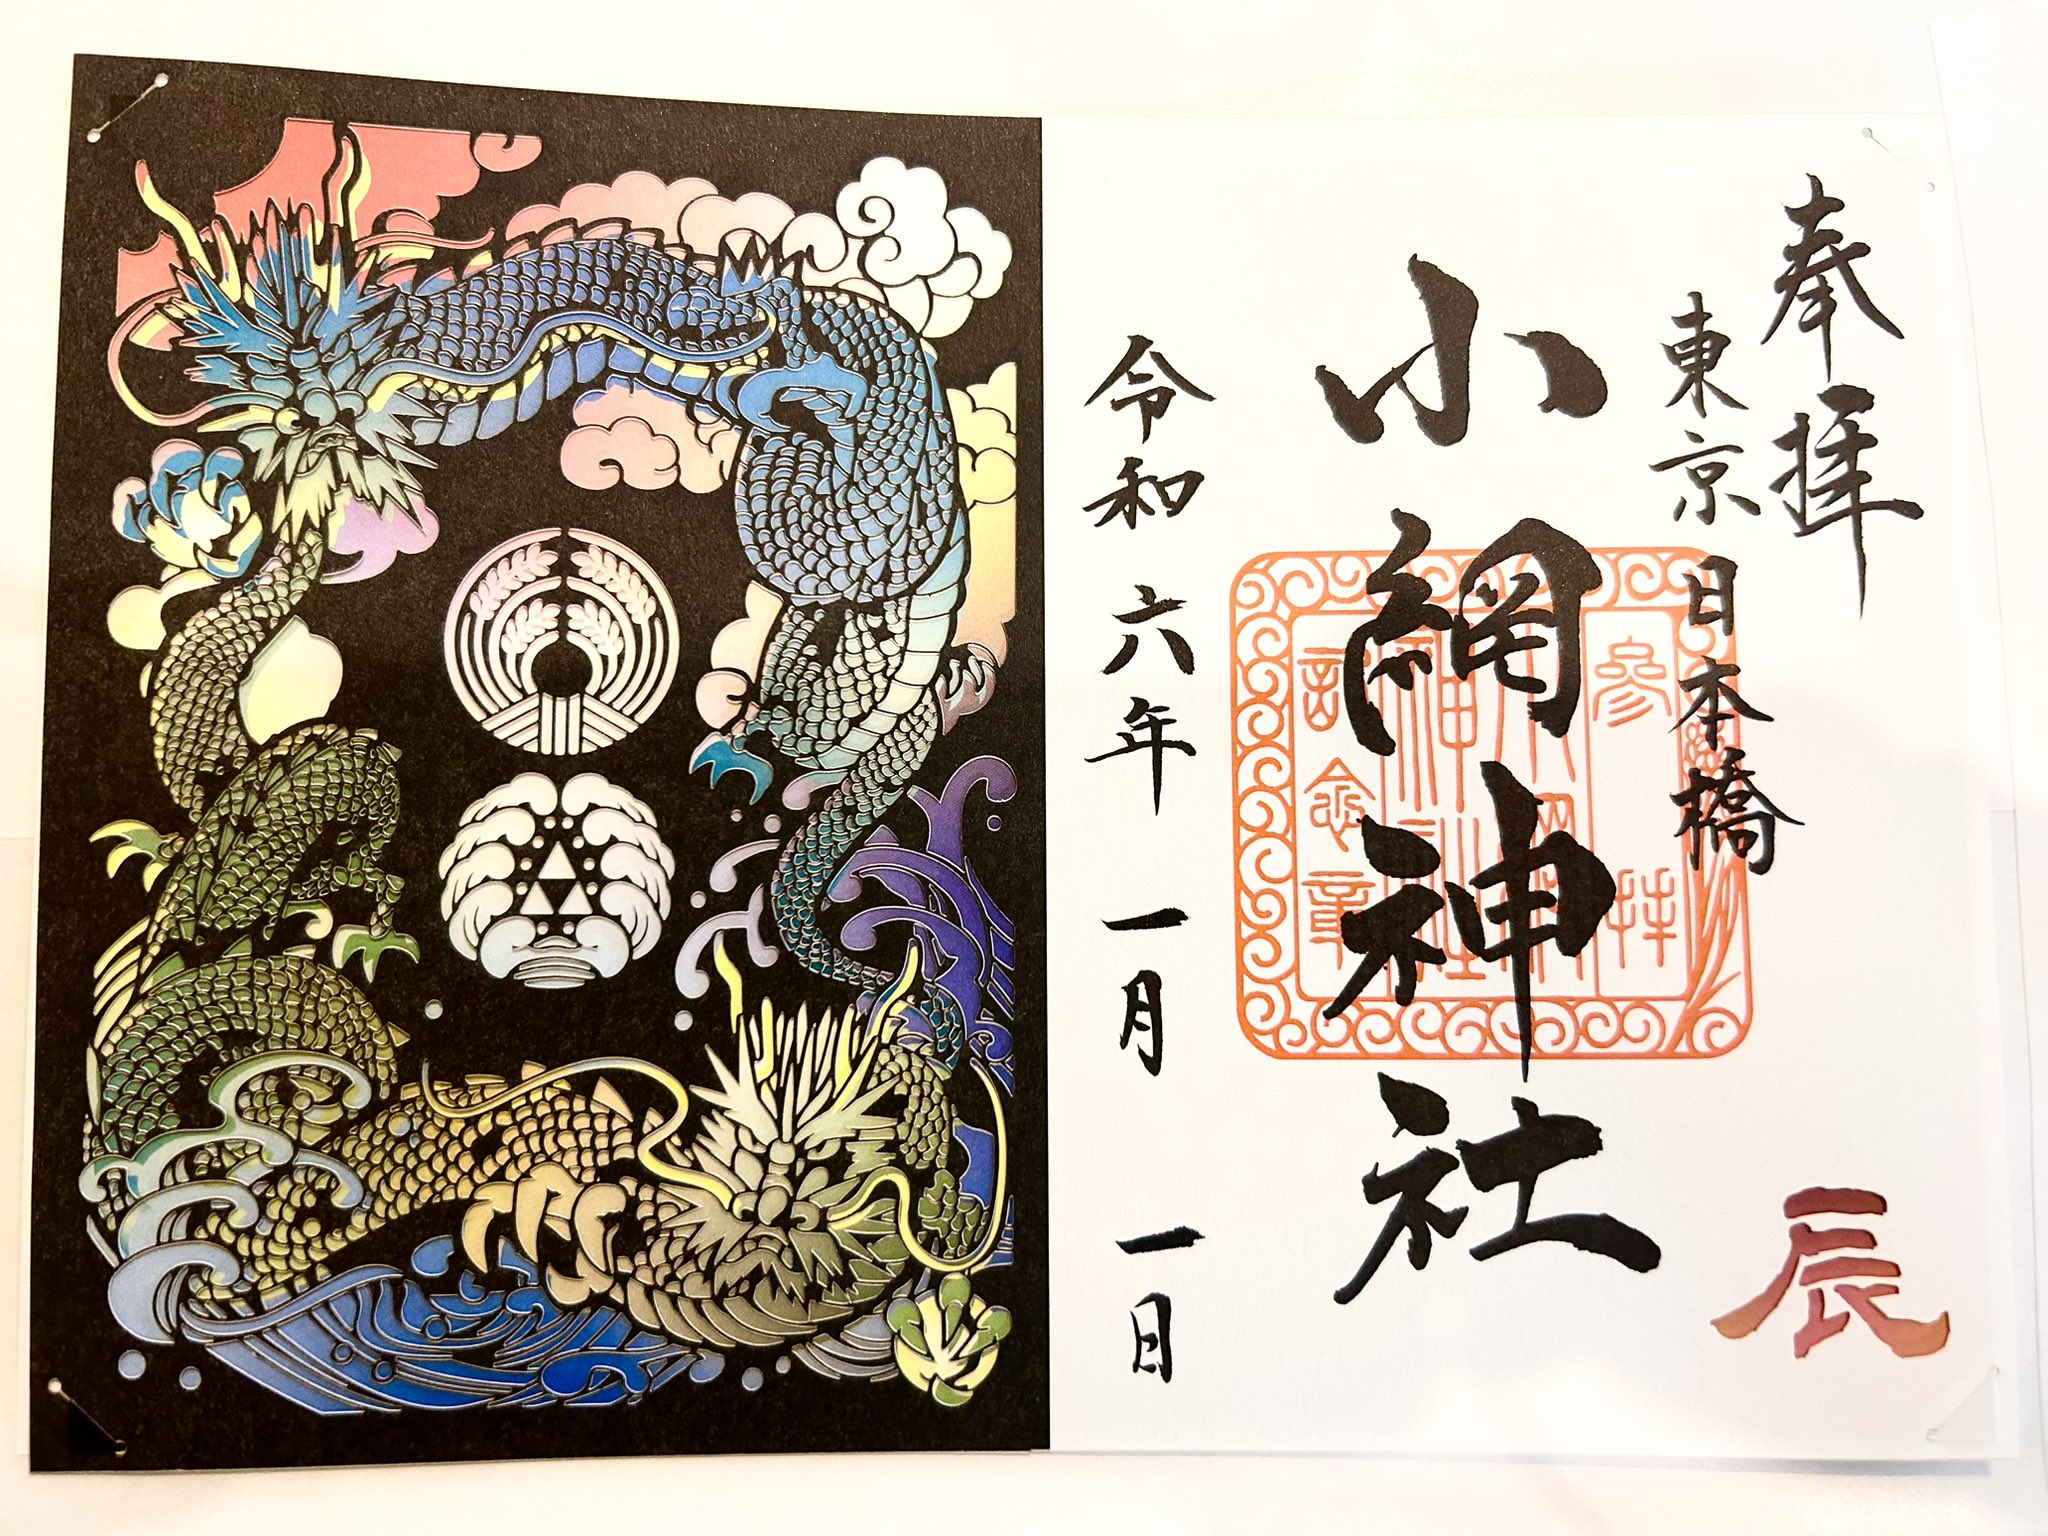 奉拝
東京
日本橋
小網神社
参拝
小網
神社
記念章
令和六年 一月 一日
辰